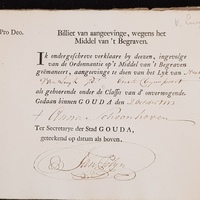 Pro Deo.
Billiet van aangeevinge, wegens het
Middel van 't Begraven.
Ik ondergeschreve verklaare by deezen, ingevolge
van de Ordonnantie op 't Middel van 't Begraven
geëmaneert, aangeevinge te doen van het Lyk van
als gehoorende onder de Classis van d' onvermogende.
Gedaan binnen GOUDA, den
Anna Schoonhoven
Ter Secretarye der Stad GOUDA,
geteekent op datum als boven.